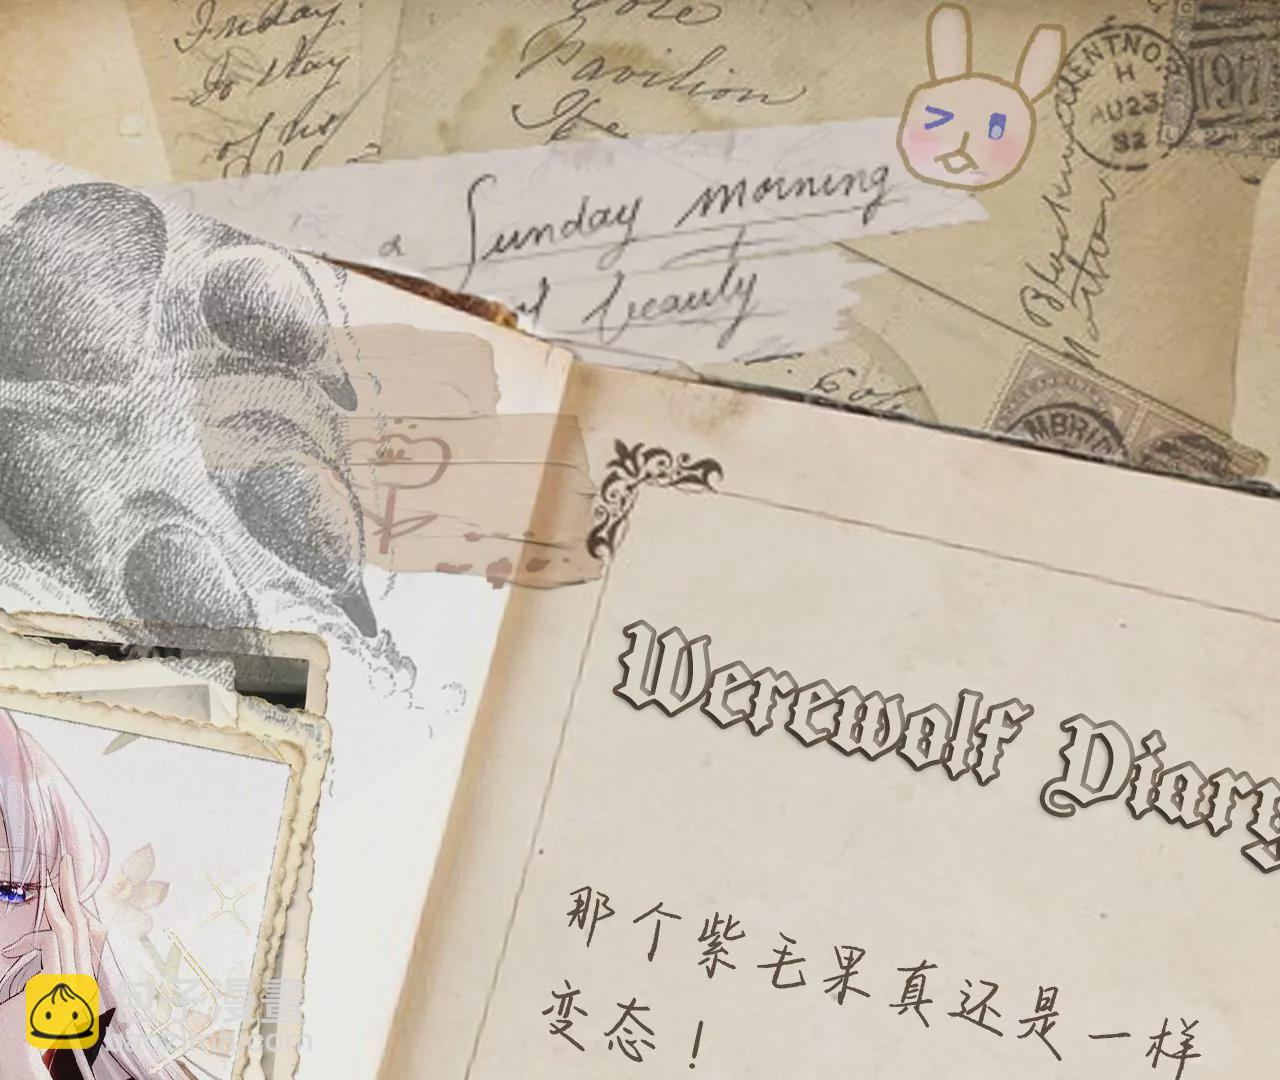 Sunday
To stay
of his
Pavilion
The
ENTNO.
H
AU23
92
197
a Sunday morning
of beauty
MBRID
Werewolf Diary
那个紫毛果真还是一样
变态！
包子漫畫
baozimh.com